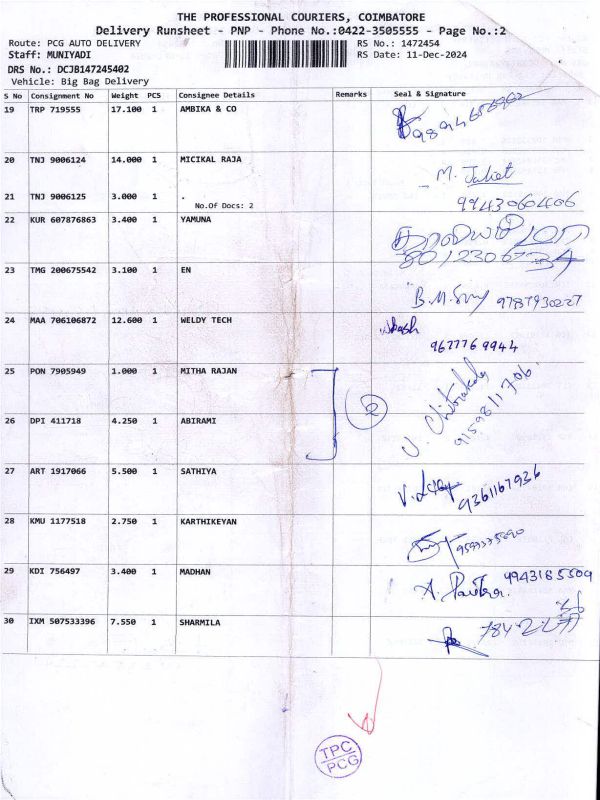 THE PROFESSIONAL COURIERS, COIMBATORE
Delivery Runsheet - PNP - Phone No.:0422-3505555 - Page No.:2
Route: PCG AUTO DELIVERY RS No.: 1472454
Staff: MUNIYADI RS Date: 11-Dec-2024
DRS No.: DCJB147245402
Vehicle: Big Bag Delivery
S No Consignment No Weight PCS Consignee Details Remarks Seal & Signature
19 TRP 719555 17.100 1 AMBIKA & CO
20 TNJ 9006124 14.000 1 MICIKAL RAJA
M. Juliet
21 TNJ 9006125 3.000 1 .
No.Of Docs: 2 9943060406
22 KUR 607876863 3.400 1 YAMUNA
8012306734
23 TMG 200675542 3.100 1 EN
9787930227
24 MAA 706106872 12.600 1 WELDY TECH
9677769944
25 PON 7905949 1.000 1 MITHA RAJAN
2
9159811706
26 DPI 411718 4.250 1 ABIRAMI
27 ART 1917066 5.500 1 SATHIYA
9361167936
28 KMU 1177518 2.750 1 KARTHIKEYAN
29 KDI 756497 3.400 1 MADHAN
30 IXM 507533396 7.550 1 SHARMILA
TPC
PCG